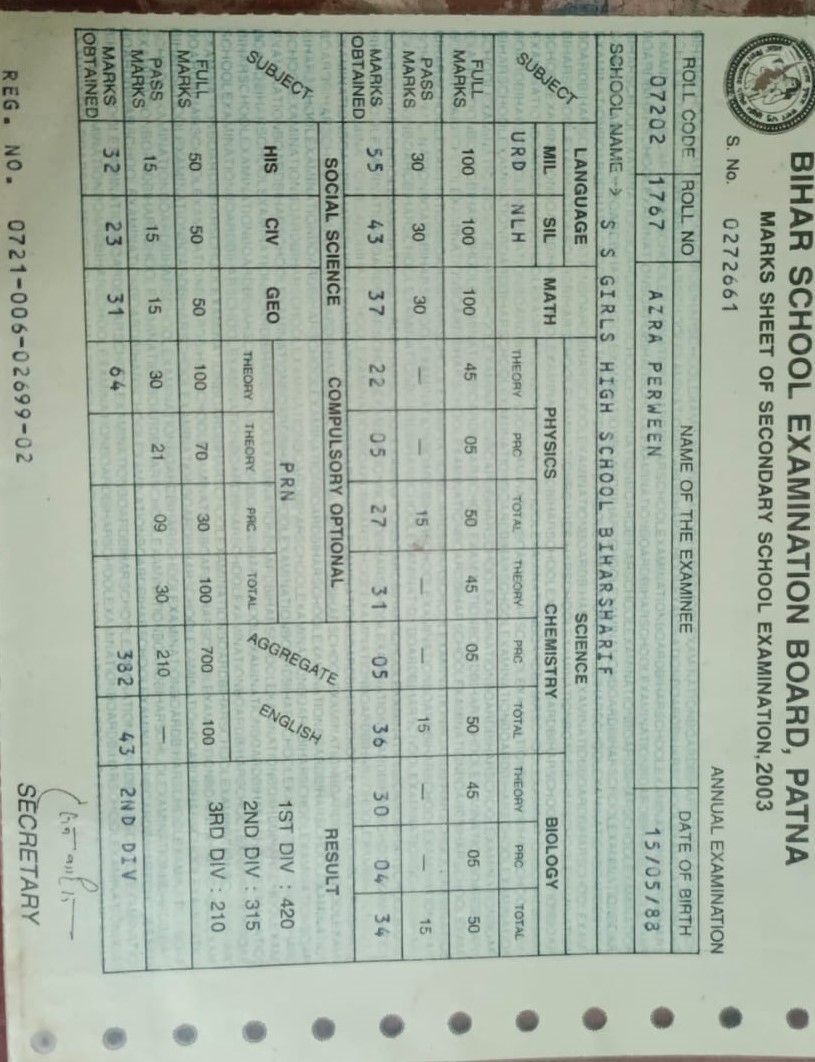 BIHAR SCHOOL EXAMINATION BOARD, PATNA
MARKS SHEET OF SECONDARY SCHOOL EXAMINATION, 2003
S. No. 0272661 ANNUAL EXAMINATION
ROLL CODE ROLL NO NAME OF THE EXAMINEE DATE OF BIRTH
07202 1767 AZRA PERWEEN 15/05/88
SCHOOL NAME → S S GIRLS HIGH SCHOOL BIHARSHARIF
SUBJECT LANGUAGE MATH SCIENCE
MIL SIL PHYSICS CHEMISTRY BIOLOGY
URD NLH THEORY PRC TOTAL THEORY PRC TOTAL THEORY PRC TOTAL
FULL MARKS 100 100 100 45 05 50 45 05 50 45 05 50
PASS MARKS 30 30 30 — — 15 — — 15 — — 15
MARKS OBTAINED 55 43 37 22 05 27 31 05 36 30 04 34
SUBJECT SOCIAL SCIENCE COMPULSORY OPTIONAL AGGREGATE ENGLISH RESULT
HIS CIV GEO PRN
THEORY THEORY PRC TOTAL
1ST DIV : 420
2ND DIV : 315
3RD DIV : 210
FULL MARKS 50 50 50 100 70 30 100 700 100
PASS MARKS 15 15 15 30 21 09 30 210 —
MARKS OBTAINED 32 23 31 64 382 43 2ND DIV
REG. NO. 0721-006-02699-02
SECRETARY